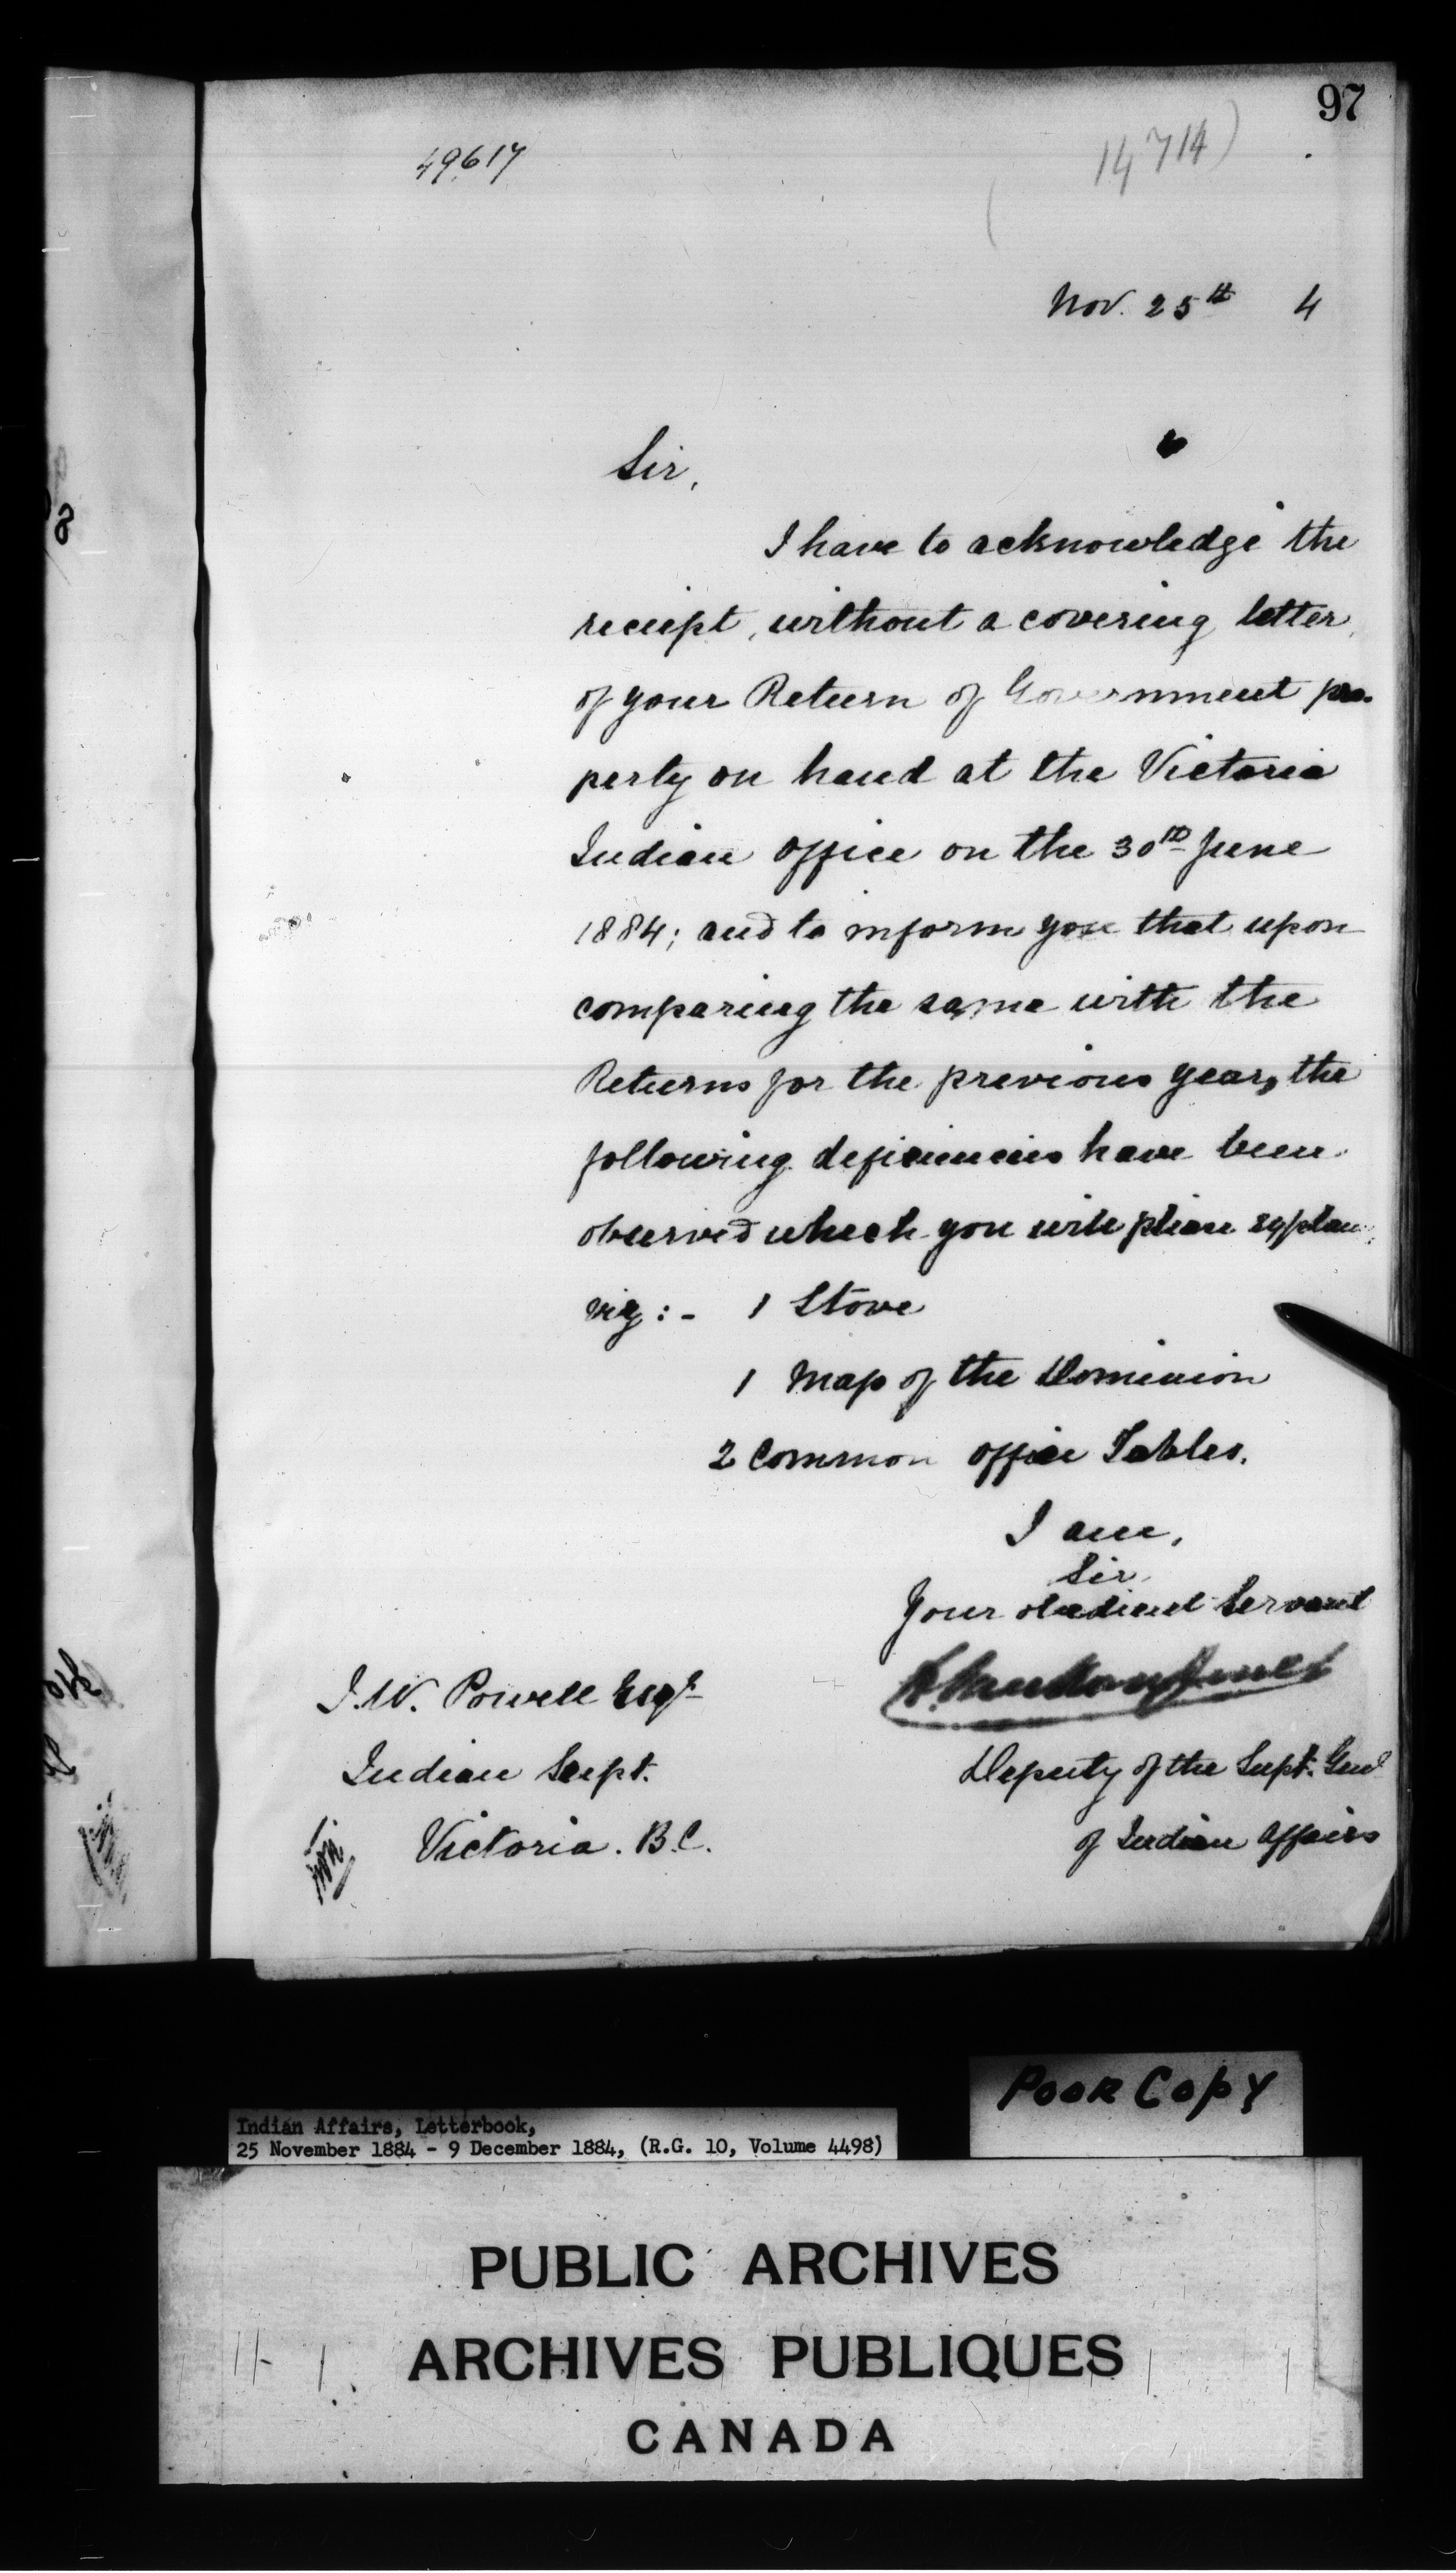 97
49617
14714
Nov. 25th 4
Sir,
I have to acknowledge the
receipt, without a covering letter,
of your Return of Government pro-
perty on hand at the Victoria
Indian Office on the 30th June
1884; and to inform you that upon
comparing the same with the
Returns for the previous year, the
following deficiencies have been
observed which you will please explain
viz:- 1 Stove
1 Map of the Dominion
2 Common Office Tables.
I am,
Sir,
Your obedient Servant
I. W. Powell Esqr
Indian Supt.
Victoria. B.C.
Deputy of the Supt. Genl
of Indian Affairs
Poor Copy
Indian Affairs, Letterbook,
25 November 1884 - 9 December 1884, (R.G. 10, Volume 4498)
PUBLIC ARCHIVES
ARCHIVES PUBLIQUES
CANADA